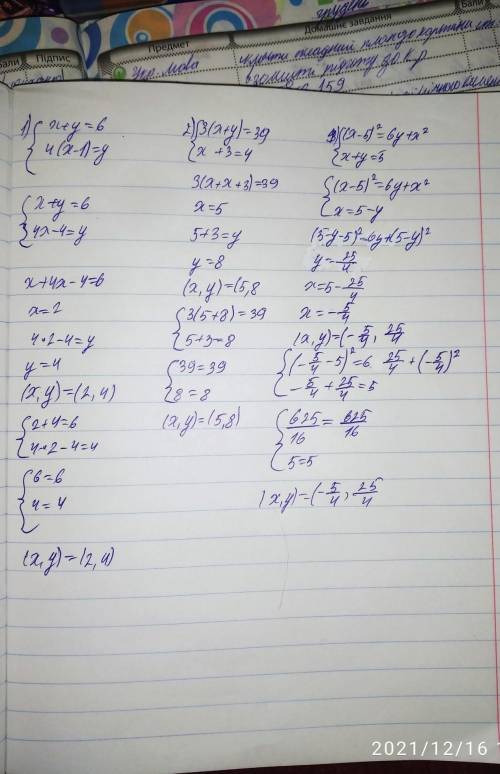 грудня
Домашнє завдання
Предмет
Підпис
Бали
Бали
Укр. мова
159
1) { x+y=6
4(x-1)=y
{ x+y=6
4x-4=y
x+4x-4=6
x=2
4·2-4=y
y=4
(x,y)=(2,4)
{ 2+4=6
4·2-4=4
{ 6=6
4=4
(x,y)=(2,4)
2) { 3(x+y)=39
x+3=y
3(x+x+3)=39
x=5
5+3=y
y=8
(x,y)=(5,8
{ 3(5+8)=39
5+3=8
{ 39=39
8=8
(x,y)=(5,8)
3) { (x-5)²=6y+x²
x+y=5
{ (x-5)²=6y+x²
x=5-y
(5-y-5)²=6y+(5-y)²
y=25/4
x=5-25/4
x=-5/4
(x,y)=(-5/4, 25/4
{ (-5/4-5)²=6·25/4+(-5/4)²
-5/4+25/4=5
{ 625/16=625/16
5=5
(x,y)=(-5/4, 25/4
2021/12/16 1